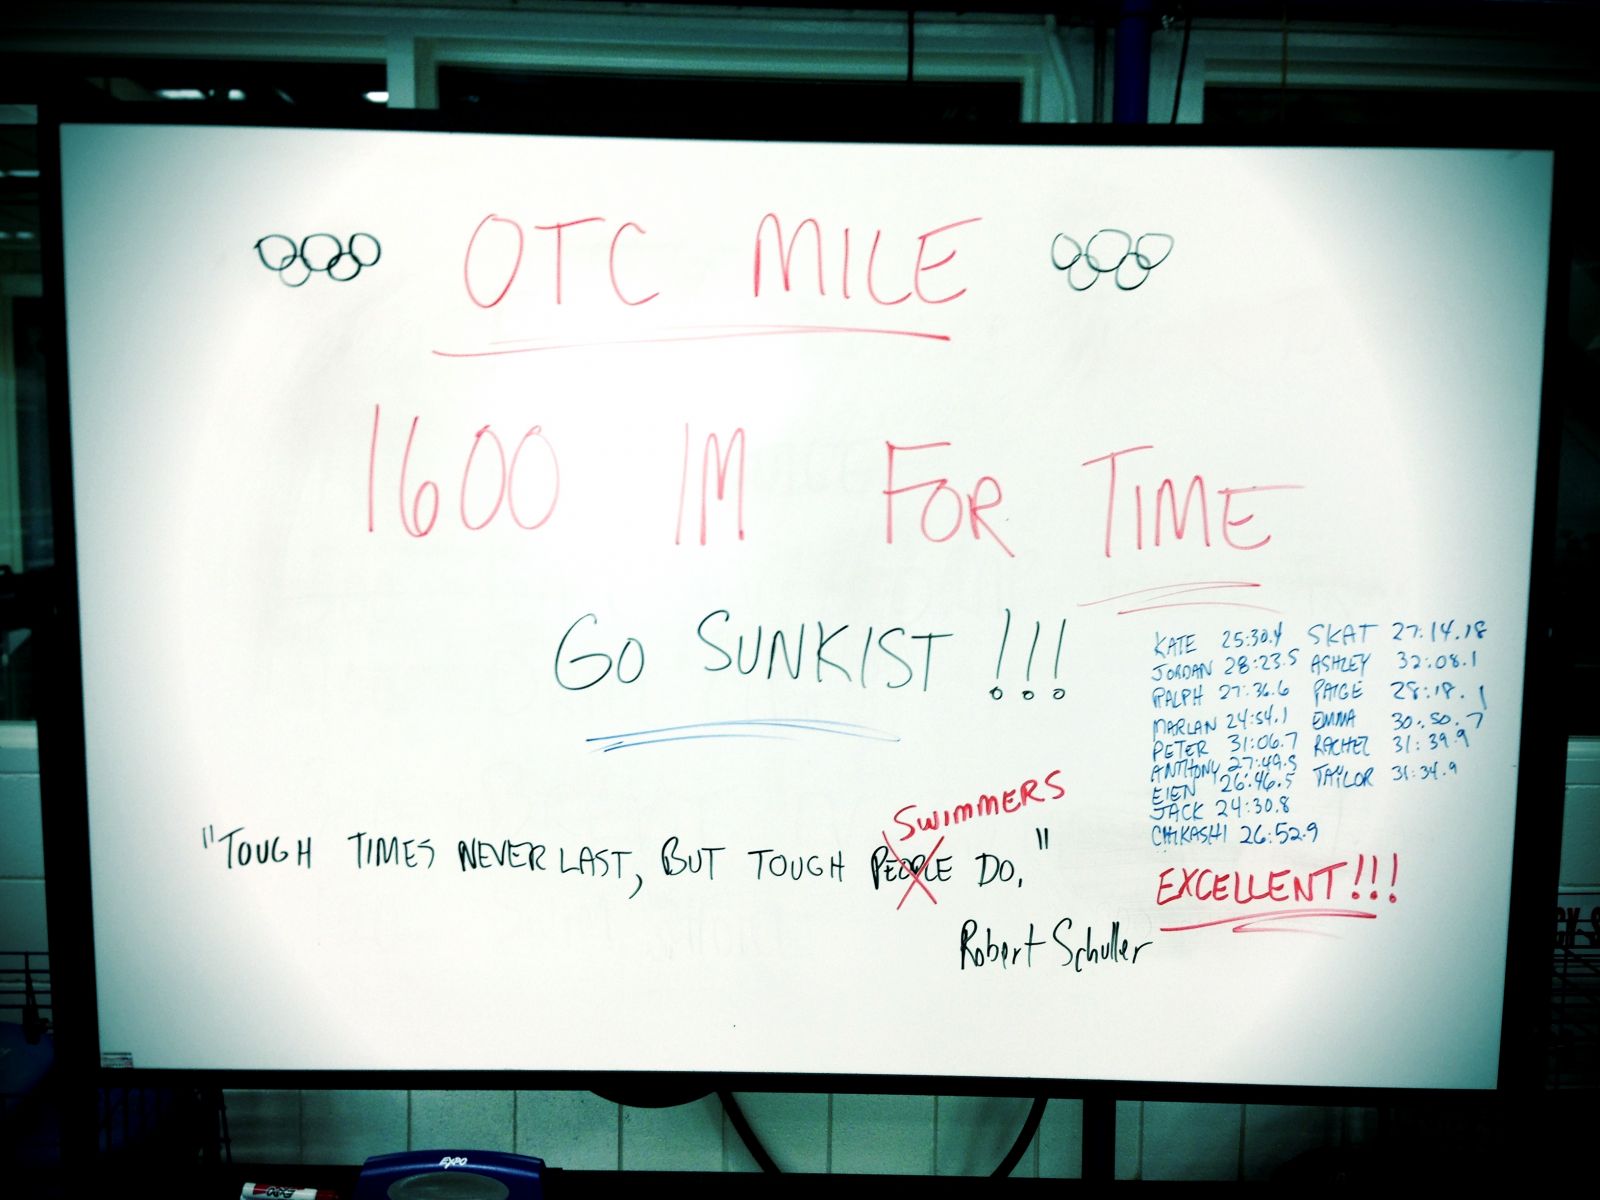 OTC MILE
1600 IM FOR TIME
GO SUNKIST !!!
KATE 25:30.4 SKAT 27:14.18
JORDAN 28:23.5 ASHLEY 32:08.1
RALPH 27:36.6 PAIGE 28:18.1
MARLAN 24:54.1 EMMA 30:50.7
PETER 31:06.7 RACHEL 31:39.9
ANTHONY 27:49.5 TAYLOR 31:34.9
EIEN 26:46.5
JACK 24:30.8
CHIKASHI 26:52.9
EXCELLENT!!!
SWIMMERS
"TOUGH TIMES NEVER LAST, BUT TOUGH PEOPLE DO."
Robert Schuller
EXPO